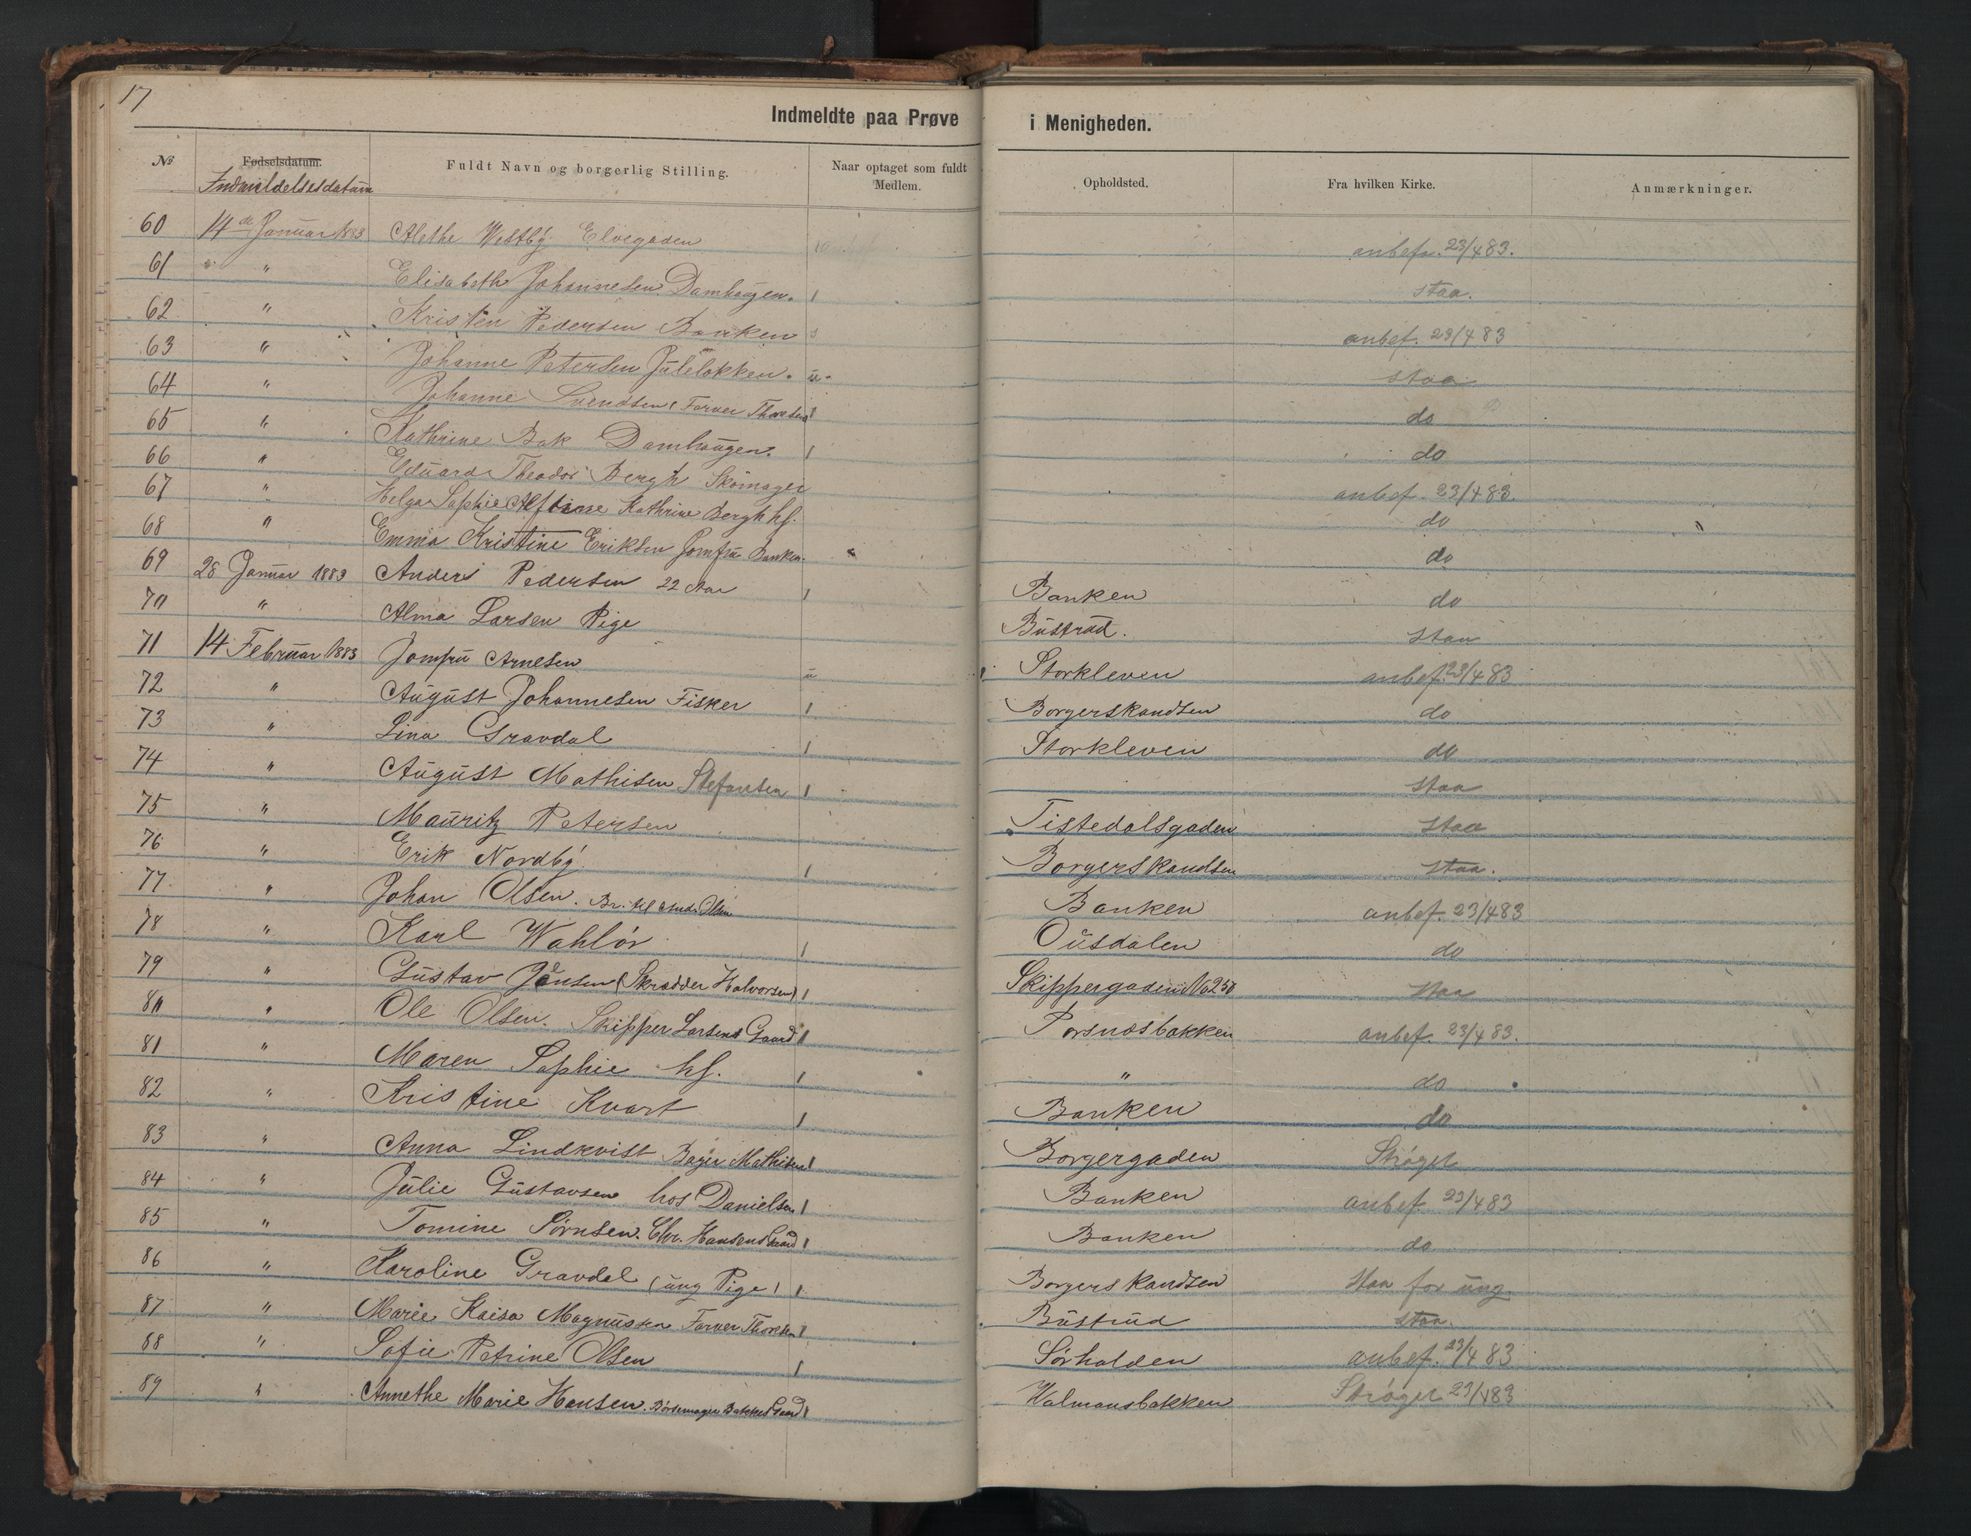 17
Indmeldte paa Prøve i Menigheden.
№ Fødselsdatum. Fuldt Navn og borgerlig Stilling. Naar optaget som fuldt Medlem. Opholdsted. Fra hvilken Kirke. Anmærkninger.
Indmeldelsesdatum
60 14de Januar 1883 Alethe Westby Elvegaden anbef. 23/4 83.
61 " " Elisabeth Johannesen. Damhaugen. staa.
62 " Kristen Pedersen Banken anbef. 23/4 83
63 " Johanne Petersen Juleløkken. staa
64 " Johanne Svendsen (Farver Thoresen do
65 " Kathrine Bak Damhaugen. do
66 " Eduard Theodor Bergh Skomager do
67 " Helga Sophie Kathrine Bergh hf. anbef. 23/4 83. do
68 " Emma Kristine Eriksen Jomfru Banken. do
69 28 Januar 1883 Anders Pedersen 22 Aar Banken do
70 " Alma Larsen Pige Büstrüd. staa
71 14 Februar 1883 Jomfru Arnesen Storkleven anbef. 23/4 83
72 " August Johannesen Fisker Borgerskandsen do
73 " Lina Gravdal Storkleven do
74 " August Mathisen Stefansen staa
75 " Mauritz Petersen Tistedalsgaden staa
76 " Erik Nordby Borgerskandsen staa.
77 " Johan Olsen. Br. til And. Olsen Banken anbef. 23/4 83
78 " Karl Wahlør Ousdalen do
79 " Gustav Jensen (Skrædder Halvorsen) Skippergaden No 250 staa
80 " Ole Olsen. Skipper Larsens Gaard Porsnæsbakken anbef. 23/4 83.
81 " Maren Sophie hf. " do
82 " Kristine Kvart Banken do
83 " Anna Lindkvist Bager Mathisen Borgergaden Strøget
84 " Julie Gustavsen hos Danielsen Banken anbef. 23/4 83
85 " Tomine Sørnsen. Chr. Hansens Gaard Banken do
86 " Karoline Gravdal (ung Pige) Borgerskandsen staa for ung.
87 " Marie Kaisa Magnussen Farver Thoresen Büstrüd staa.
88 " Sofie Petrine Olsen Sørhalden anbef. 23/4 83
89 " Annethe Marie Hansen. Børsemager Bakkes Gaard Walmansbakken Strøget 23/4 83